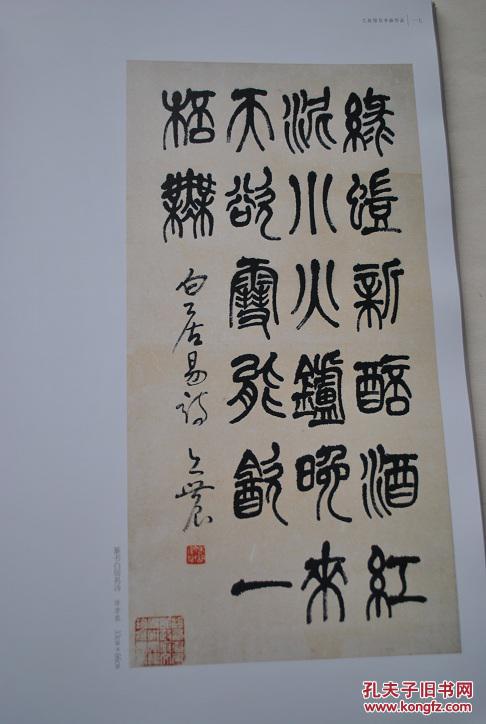 一七
綠螘新醅酒紅
泥小火鑪晚來
天欲雪能飲一
桮無
白居易詩
篆书白居易诗
孔夫子旧书网
www.kongfz.com